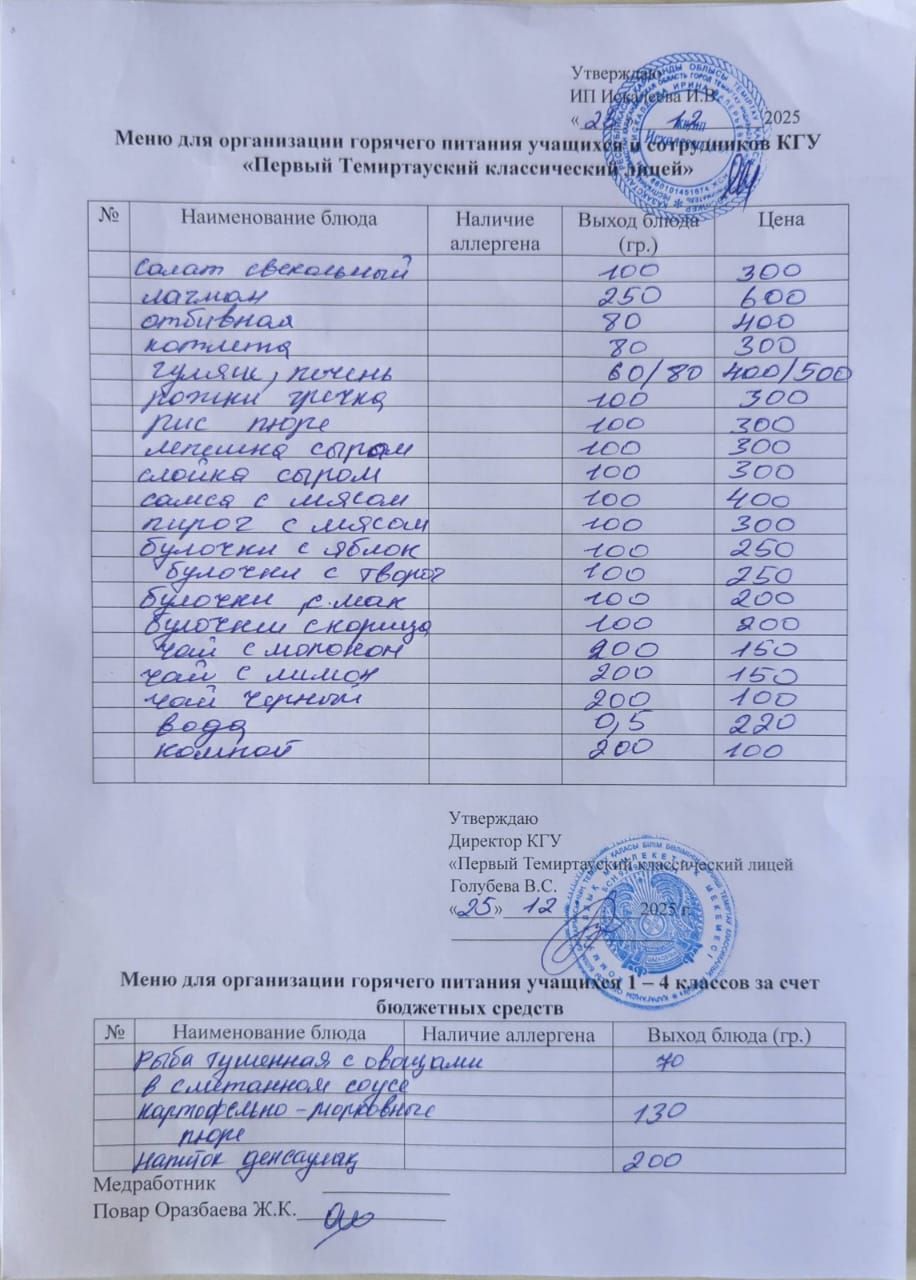 Утверждаю
ИП Искалеева И.В.
« 25 » 12 2025
Меню для организации горячего питания учащихся и сотрудников КГУ
«Первый Темиртауский классический лицей»
№ Наименование блюда Наличие аллергена Выход блюда (гр.) Цена
Салат свекольный 100 300
лагман 250 600
отбивная 80 400
котлета 80 300
гуляш, печень 60/80 400/500
рожки гречка 100 300
рис пюре 100 300
лепешка сыром 100 300
слойка сыром 100 300
самса с мясом 100 400
пирог с мясом 100 300
булочки с яблок 100 250
булочки с творог 100 250
булочки с мак 100 200
булочки скорица 100 200
чай смолоком 200 150
чай с лимон 200 150
чай черный 200 100
вода 0,5 220
компот 200 100
Утверждаю
Директор КГУ
«Первый Темиртауский классический лицей
Голубева В.С.
«25» 12 2025 г.
Меню для организации горячего питания учащихся 1 – 4 классов за счет
бюджетных средств
№ Наименование блюда Наличие аллергена Выход блюда (гр.)
Рыба тушенная с овощами 70
в сметанном соусе
картофельно-морковные 130
пюре
напиток денсаулық 200
Медработник
Повар Оразбаева Ж.К.